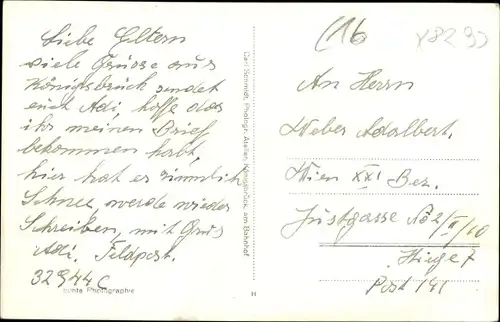 Liebe Eltern
viele Grüsse aus
Königsbrück sendet
euch Adi, hoffe das
ihr meinen Brief
bekommen habt,
hier hat es ziemlich
Schnee, werde wieder
Schreiben, mit Grus
Adi. Feldpost.
32944 C
Echte Photographie
Carl Schmidt, Photogr. Atelier, Königsbrück, am Bahnhof
H
An Herrn
Weber Adalbert.
Wien XXI Bez.
Justgasse No 2/II/10
Stiege 7
Post 141